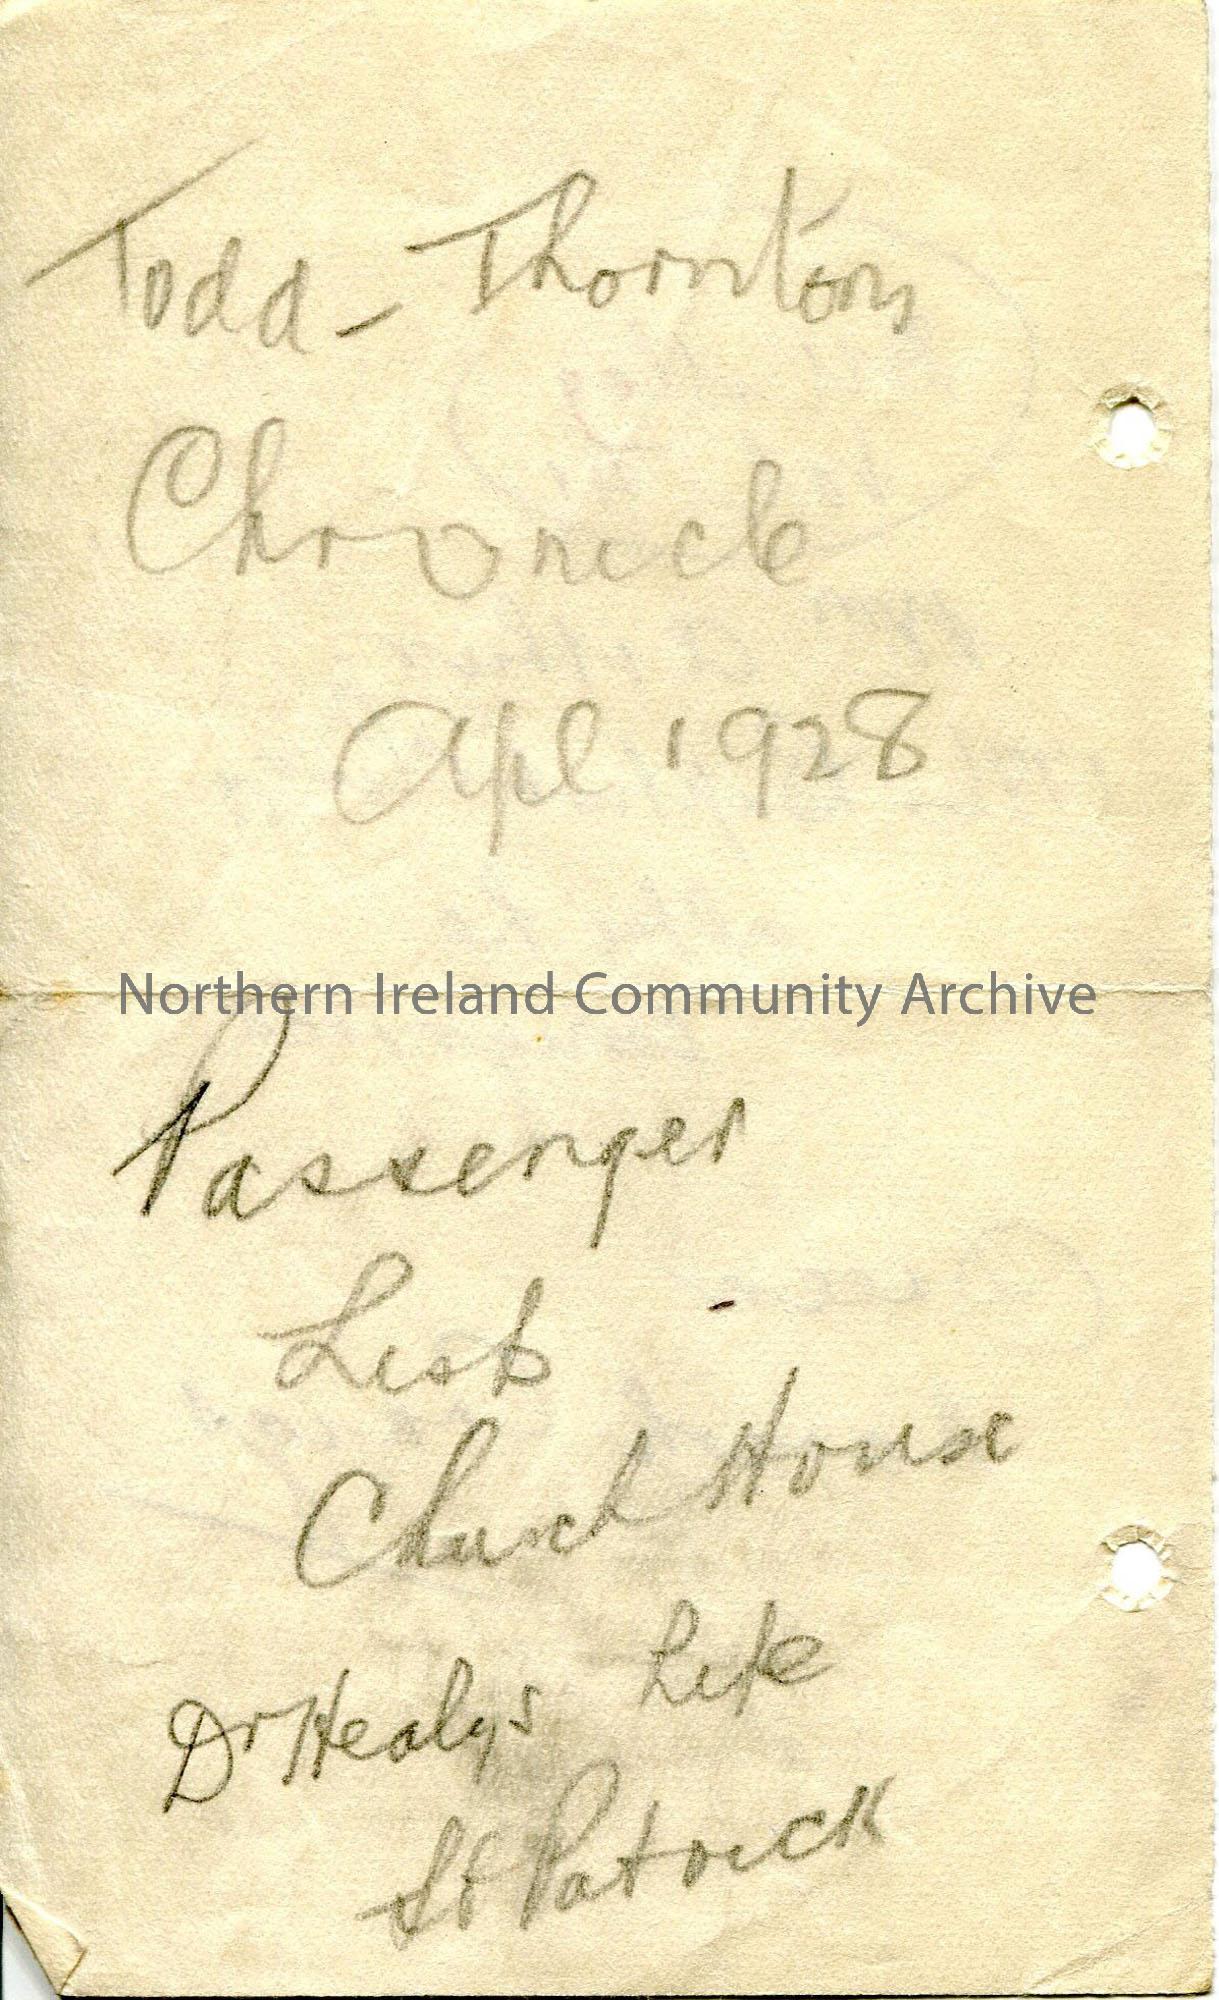 Todd - Thorntons
Chronicle
Apl 1928
Northern Ireland Community Archive
Passenger
List
Church House
Dr Healys Life
St Patrick